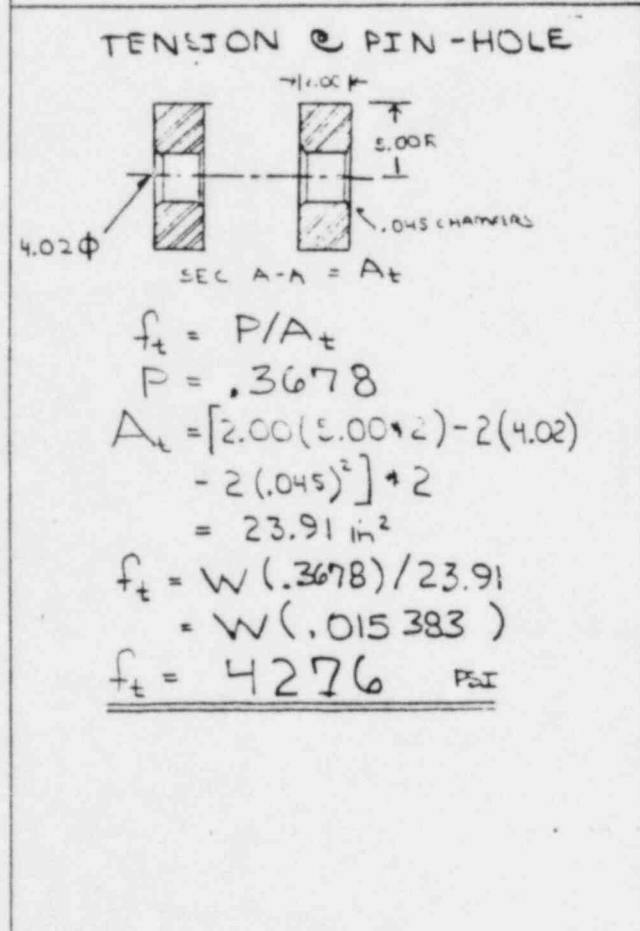 TENSION @ PIN-HOLE
5.00R
4.02φ
.045 CHAMFERS
SEC A-A = At
ft = P/At
P = .3678
At = [2.00(5.00*2)-2(4.02)
- 2(.045)²] * 2
= 23.91 in²
ft = W(.3678)/23.91
= W(.015383)
ft = 4276 PSI